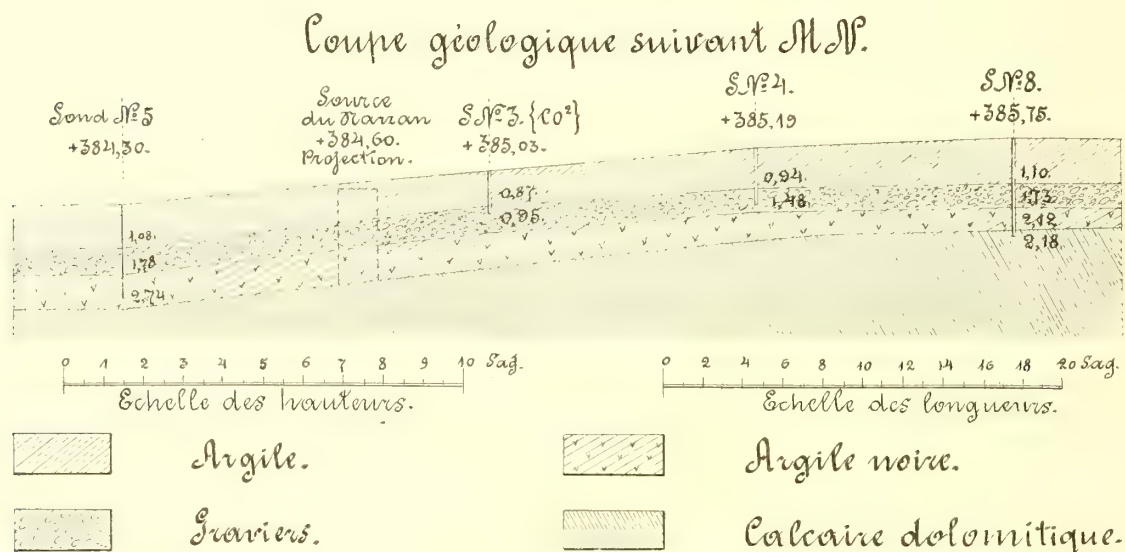 Coupe géologique suivant MN.
Sond № 5
+384,30.
Source
du Narzan
+384,60.
Projection.
S № 3. {CO²}
+385,03.
S № 4.
+385,19
S № 8.
+385,75.
1,08.
1,78
2,74
0,87.
0,95.
0,94.
1,48
1,10.
1,73.
2,12
2,18
0 1 2 3 4 5 6 7 8 9 10 Sag.
Echelle des hauteurs.
0 2 4 6 8 10 12 14 16 18 20 Sag.
Echelle des longueurs.
Argile.
Argile noire.
Graviers.
Calcaire dolomitique.